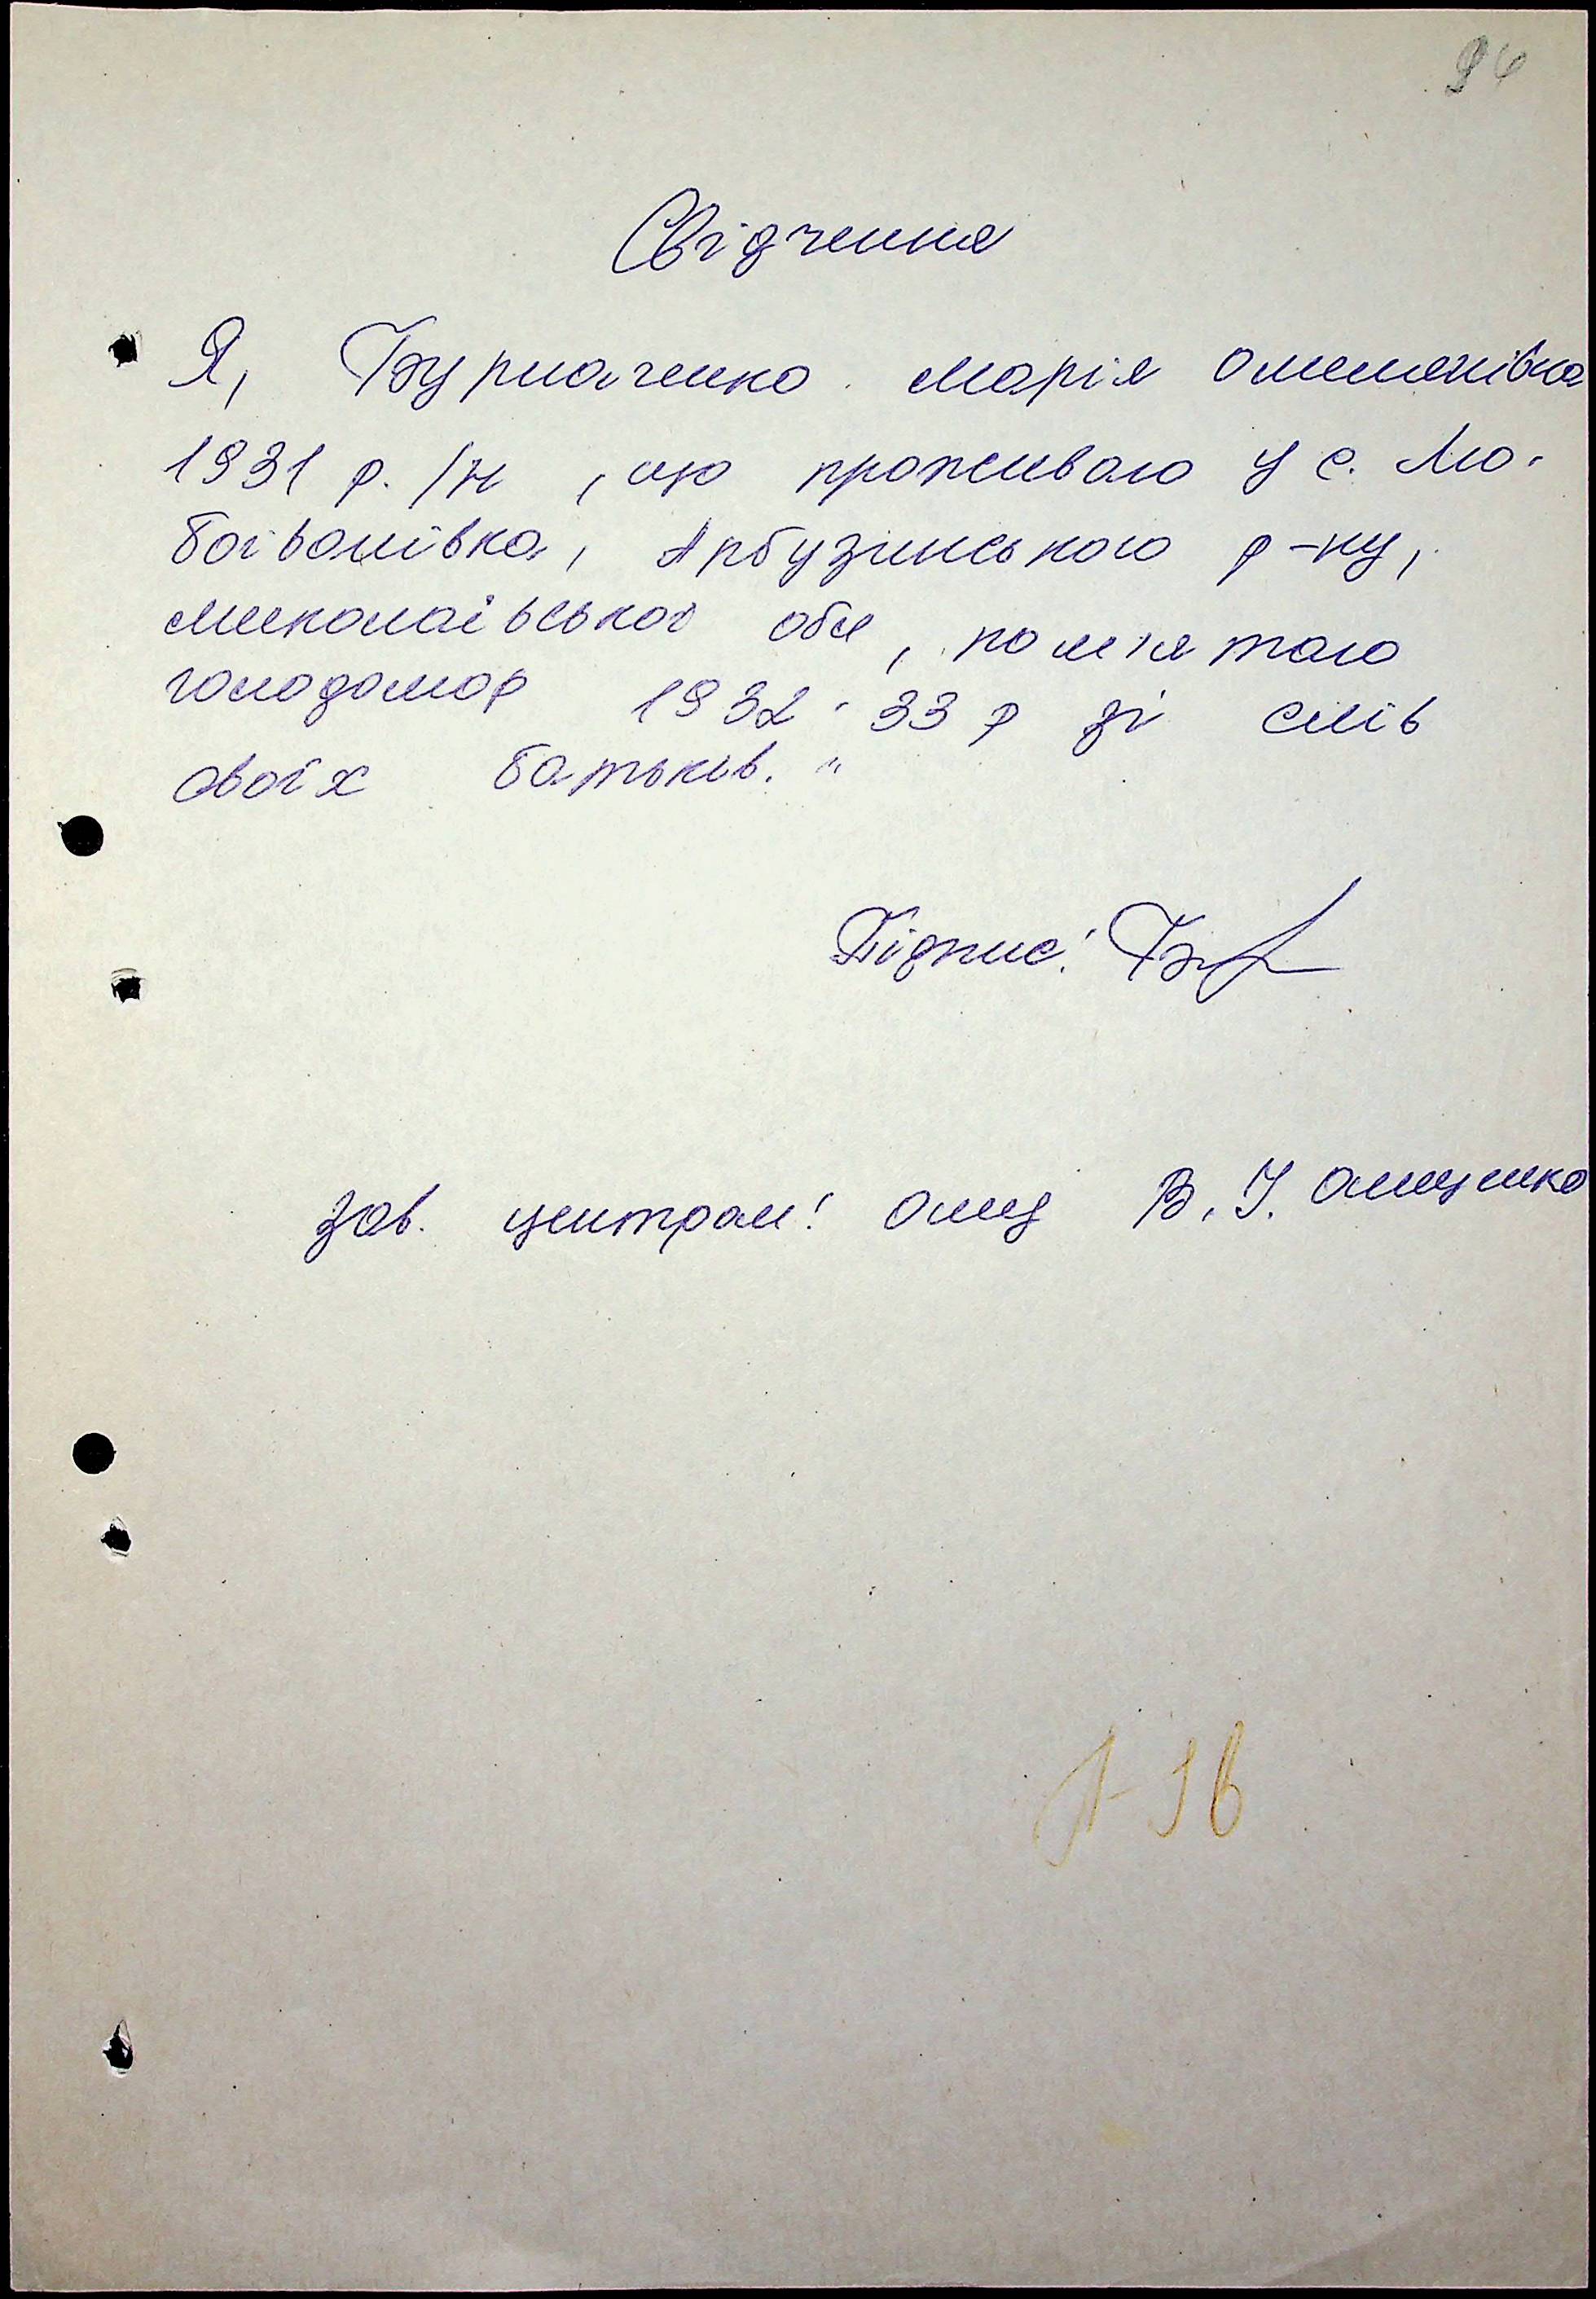 Свідчення
Я, Бурначенко Марія Омелянівна
1931 р. /н, що проживаю у с. Лю-
боіванівка, Арбузинського р-ну,
Миколаївської обл, пам'ятаю
голодомор 1932-33 р зі слів
своїх батьків."
Підпис:
Зав. центром: В. І. Онищенко